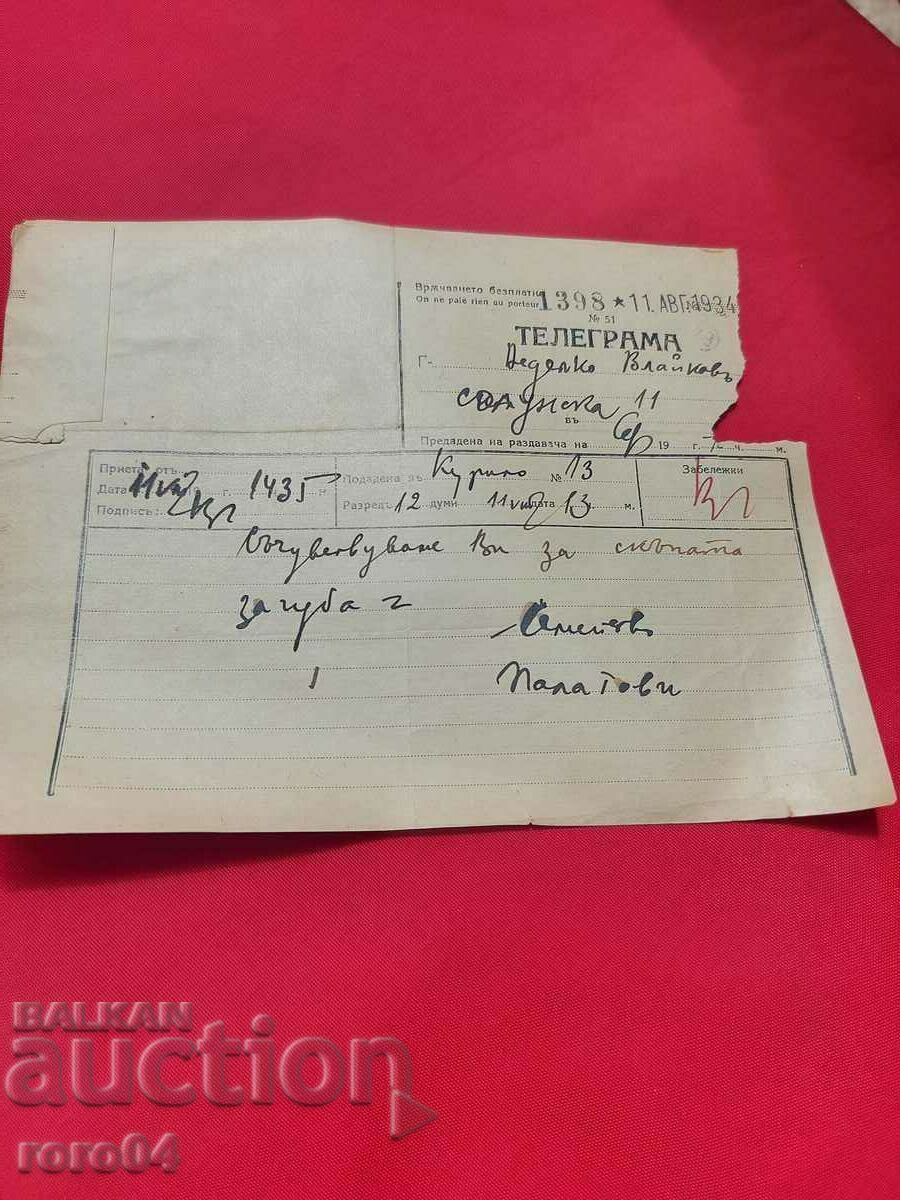 Врѫчването безплатно
On ne paie rien au porteur
1398 * 11. АВГ. 1934
№ 51
ТЕЛЕГРАМА
Г- Неделко Влайковъ
Солунска 11
въ
Предадена на раздавача на 19 г. ч. м.
Приета отъ
Дата 11 г. 1435
Подпись:
Подадена въ Курило № 13
Разредъ 12 думи 11 дата 13 м.
Забележки
Съчувствуваме Ви за скъпата
загуба
Семейство
Палатови
BALKAN
auction
roro04